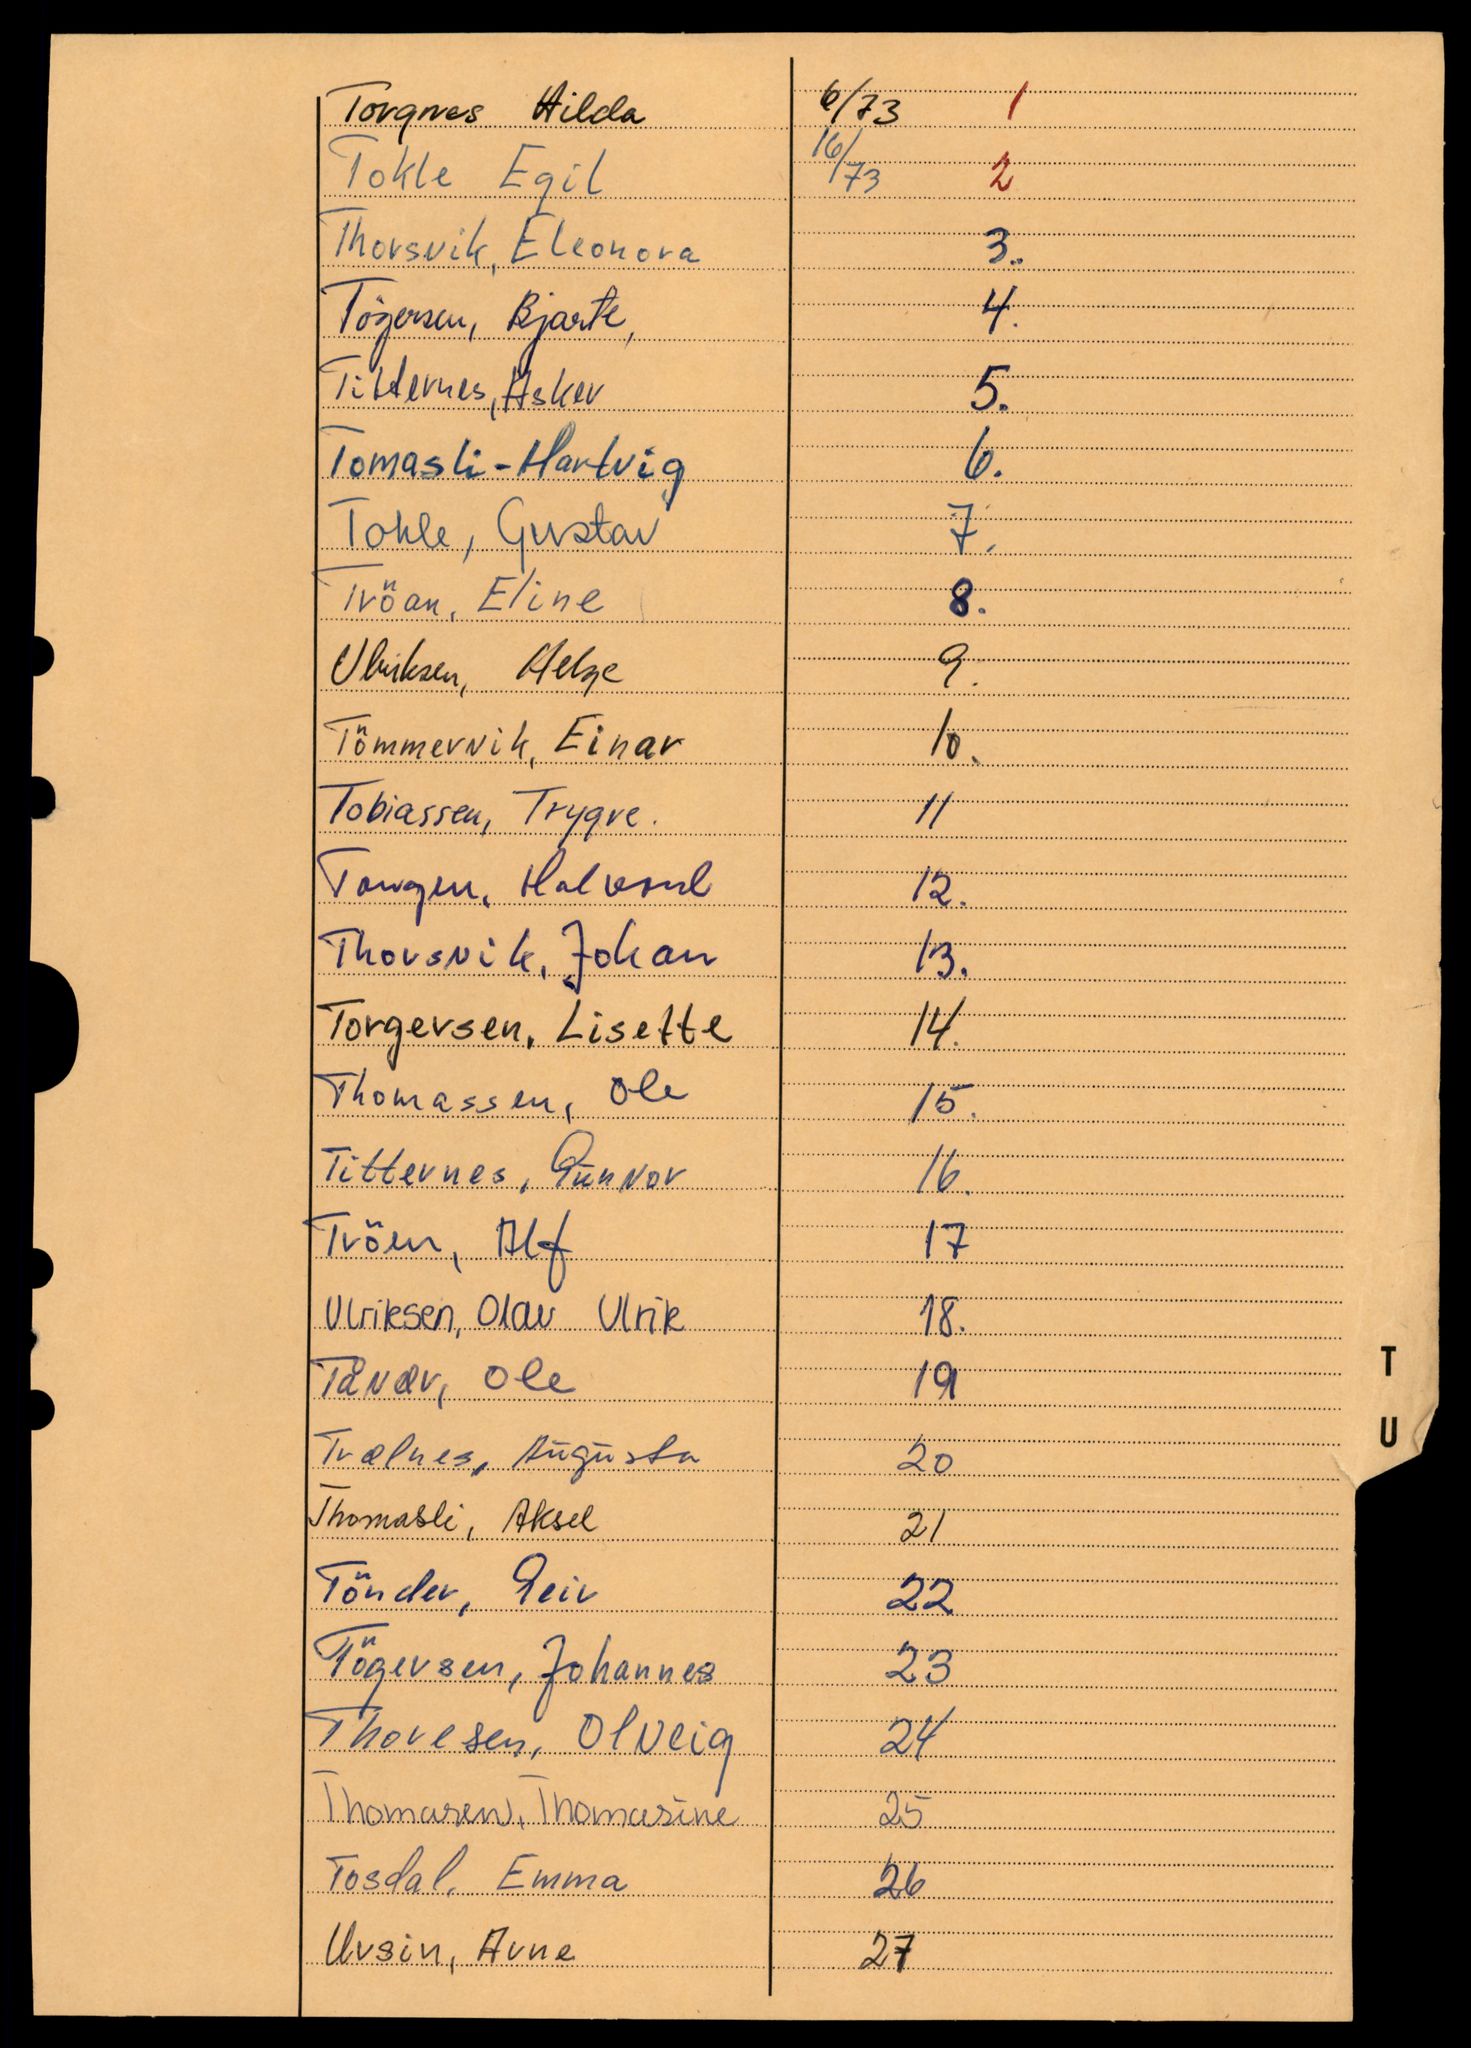 Torgnes Hilda 6/73 1
Tokle Egil 16/73 2
Thorsvik, Eleonora 3.
Tögersen, Bjarte, 4.
Titternes, Asker 5.
Tomasli-Hartvig 6.
Tokle, Gustav 7.
Tröan, Eline 8.
Ulriksen, Helge 9.
Tömmervik, Einar 10.
Tobiassen, Trygve. 11
Tangen, Halvard 12.
Thorsvik, Johan 13.
Torgersen, Lisette 14.
Thomassen, Ole 15.
Titternes, Gunvor 16.
Tröen, Alf 17
Ulriksen, Olav Ulrik 18.
Tåvær, Ole 19
Trælnes, Augusta 20
Thomasli, Aksel 21
Tönder, Geir 22
Tögersen, Johannes 23
Thoresen, Olveig 24
Thomasen, Thomasine 25
Tosdal, Emma 26
Ursin, Arne 27
T
U